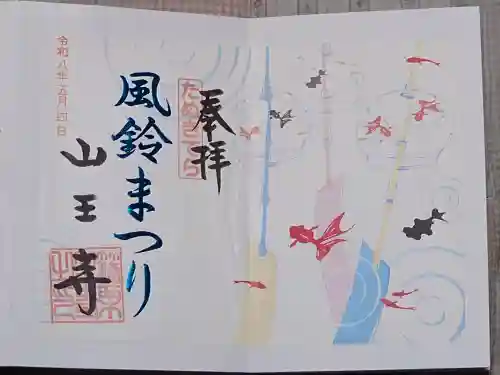 奉拝
風鈴まつり
山王寺
令和八年五月四日